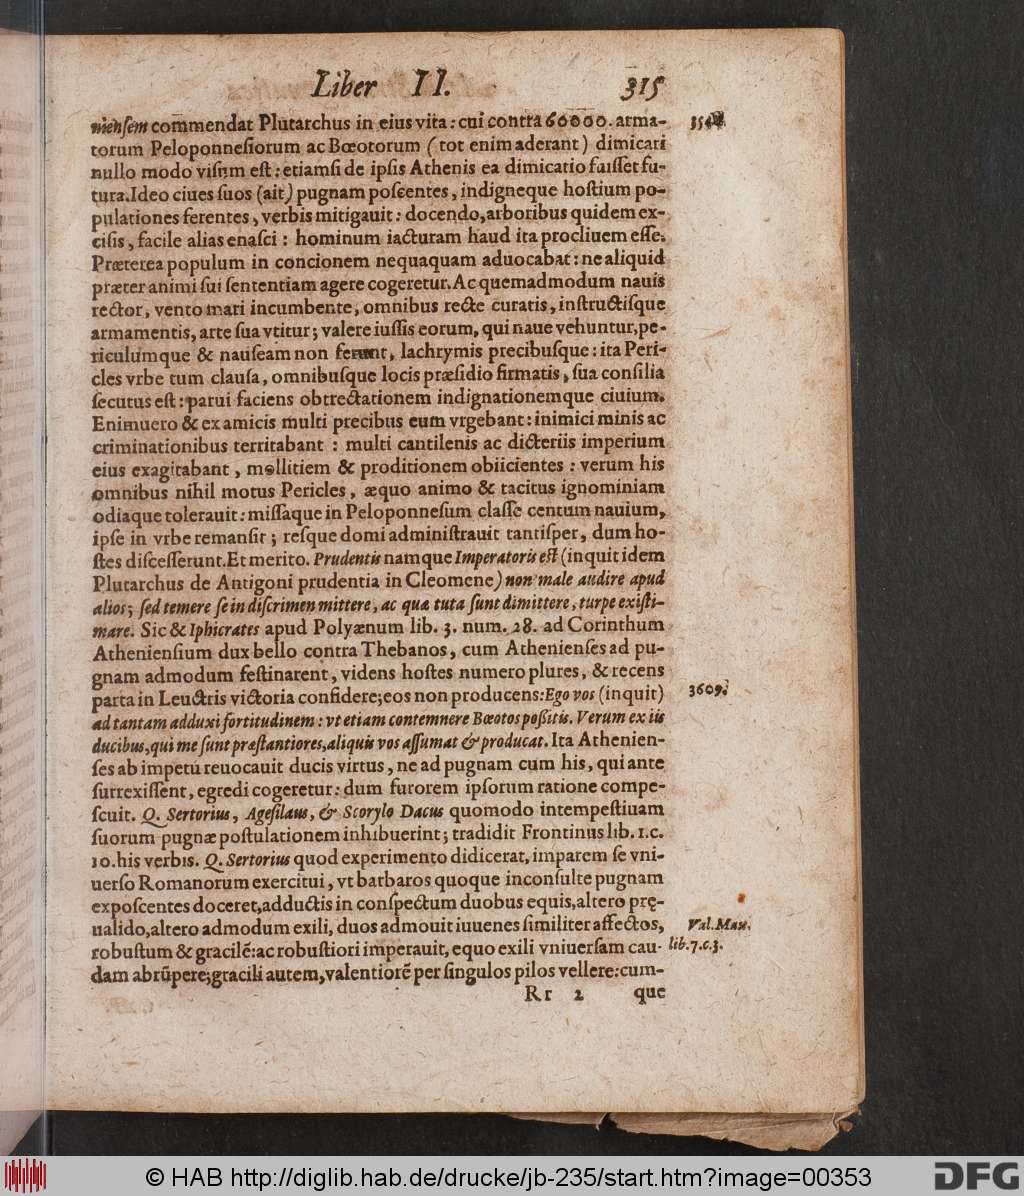 Liber II. 315
nienſem commendat Plutarchus in eius vita: cui contra 60000. arma-
torum Peloponneſiorum ac Bœotorum (tot enim aderant) dimicari
nullo modo viſum eſt: etiamſi de ipſis Athenis ea dimicatio fuiſſet fu-
tura. Ideo ciues ſuos (ait) pugnam poſcentes, indigneque hoſtium po-
pulationes ferentes, verbis mitigauit: docendo, arboribus quidem ex-
ciſis, facile alias enaſci: hominum iacturam haud ita procliuem eſſe.
Præterea populum in concionem nequaquam aduocabat: ne aliquid
præter animi ſui ſententiam agere cogeretur. Ac quemadmodum nauis
rector, vento mari incumbente, omnibus recte curatis, inſtructiſque
armamentis, arte ſua vtitur; valere iuſſis eorum, qui naue vehuntur, pe-
riculumque & nauſeam non ferunt, lachrymis precibuſque: ita Peri-
cles vrbe tum clauſa, omnibuſque locis præſidio firmatis, ſua conſilia
ſecutus eſt: parui faciens obtrectationem indignationemque ciuium.
Enimuero & ex amicis multi precibus eum vrgebant: inimici minis ac
criminationibus territabant : multi cantilenis ac dicteriis imperium
eius exagitabant, mollitiem & proditionem obiicientes : verum his
omnibus nihil motus Pericles, æquo animo & tacitus ignominiam
odiaque tolerauit: miſſaque in Peloponneſum claſſe centum nauium,
ipſe in vrbe remanſit; reſque domi adminiſtrauit tantiſper, dum ho-
ſtes diſceſſerunt. Et merito. Prudentis namque Imperatoris eſt (inquit idem
Plutarchus de Antigoni prudentia in Cleomene) non male audire apud
alios; ſed temere ſe in diſcrimen mittere, ac quæ tuta ſunt dimittere, turpe exiſti-
mare. Sic & Iphicrates apud Polyænum lib. 3. num. 28. ad Corinthum
Athenienſium dux bello contra Thebanos, cum Athenienſes ad pu-
gnam admodum feſtinarent, videns hoſtes numero plures, & recens
parta in Leuctris victoria confidere; eos non producens: Ego vos (inquit)
3609.
ad tantam adduxi fortitudinem: vt etiam contemnere Bœotos poſſitis. Verum ex iis
ducibus, qui me ſunt præſtantiores, aliquis vos aſſumat & producat. Ita Athenien-
ſes ab impetu reuocauit ducis virtus, ne ad pugnam cum his, qui ante
ſurrexiſſent, egredi cogeretur: dum furorem ipſorum ratione compe-
ſcuit. Q. Sertorius, Ageſilaus, & Scorylo Dacus quomodo intempeſtiuam
ſuorum pugnæ poſtulationem inhibuerint; tradidit Frontinus lib. 1. c.
10. his verbis. Q. Sertorius quod experimento didicerat, imparem ſe vni-
uerſo Romanorum exercitui, vt barbaros quoque inconſulte pugnam
expoſcentes doceret, adductis in conſpectum duobus equis, altero prę-
ualido, altero admodum exili, duos admouit iuuenes ſimiliter affectos,
Val. Max.
robuſtum & gracilē: ac robuſtiori imperauit, equo exili vniuerſam cau-
lib. 7. c. 3.
dam abrūpere; gracili autem, valentiorē per ſingulos pilos vellere: cum-
Rr 2 que
© HAB http://diglib.hab.de/drucke/jb-235/start.htm?image=00353
DFG